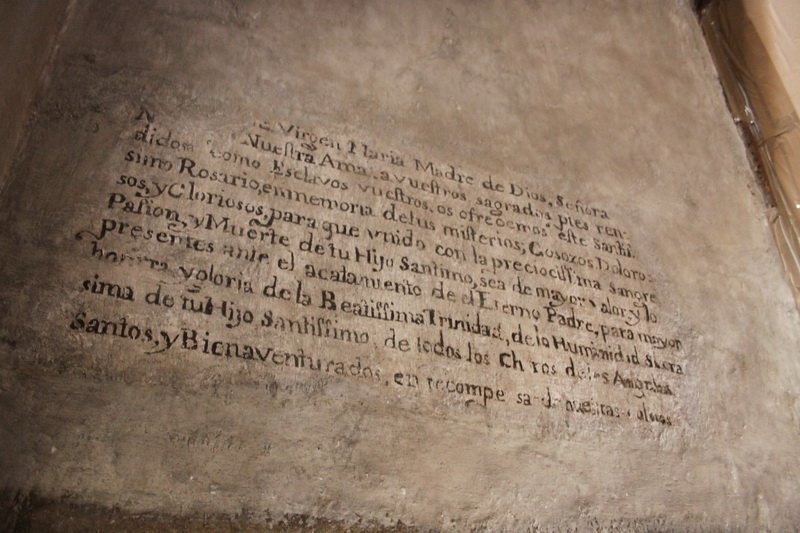 Virgen Maria Madre de Dios, Señora
Nuestra Ama, a vuestros sagrados pies ren-
didos como Esclavos vuestros, os ofrecemos este Santi-
simo Rosario, en memoria de tus misterios; Gosozos Doloro-
sos, y Gloriosos, para que vnido con la preciocissima Sangre
Pasion, y Muerte de tu Hijo Santimo, sea de mayor valor, y lo
presentes ante el acatamiento de el Eterno Padre, para mayor
honrra y gloria de la Beatissima Trinidad, de la Humanidad Sacra
sima de tu Hijo Santissimo, de todos los de los Angeles
Santos, y Bienaventurados, en nuestras